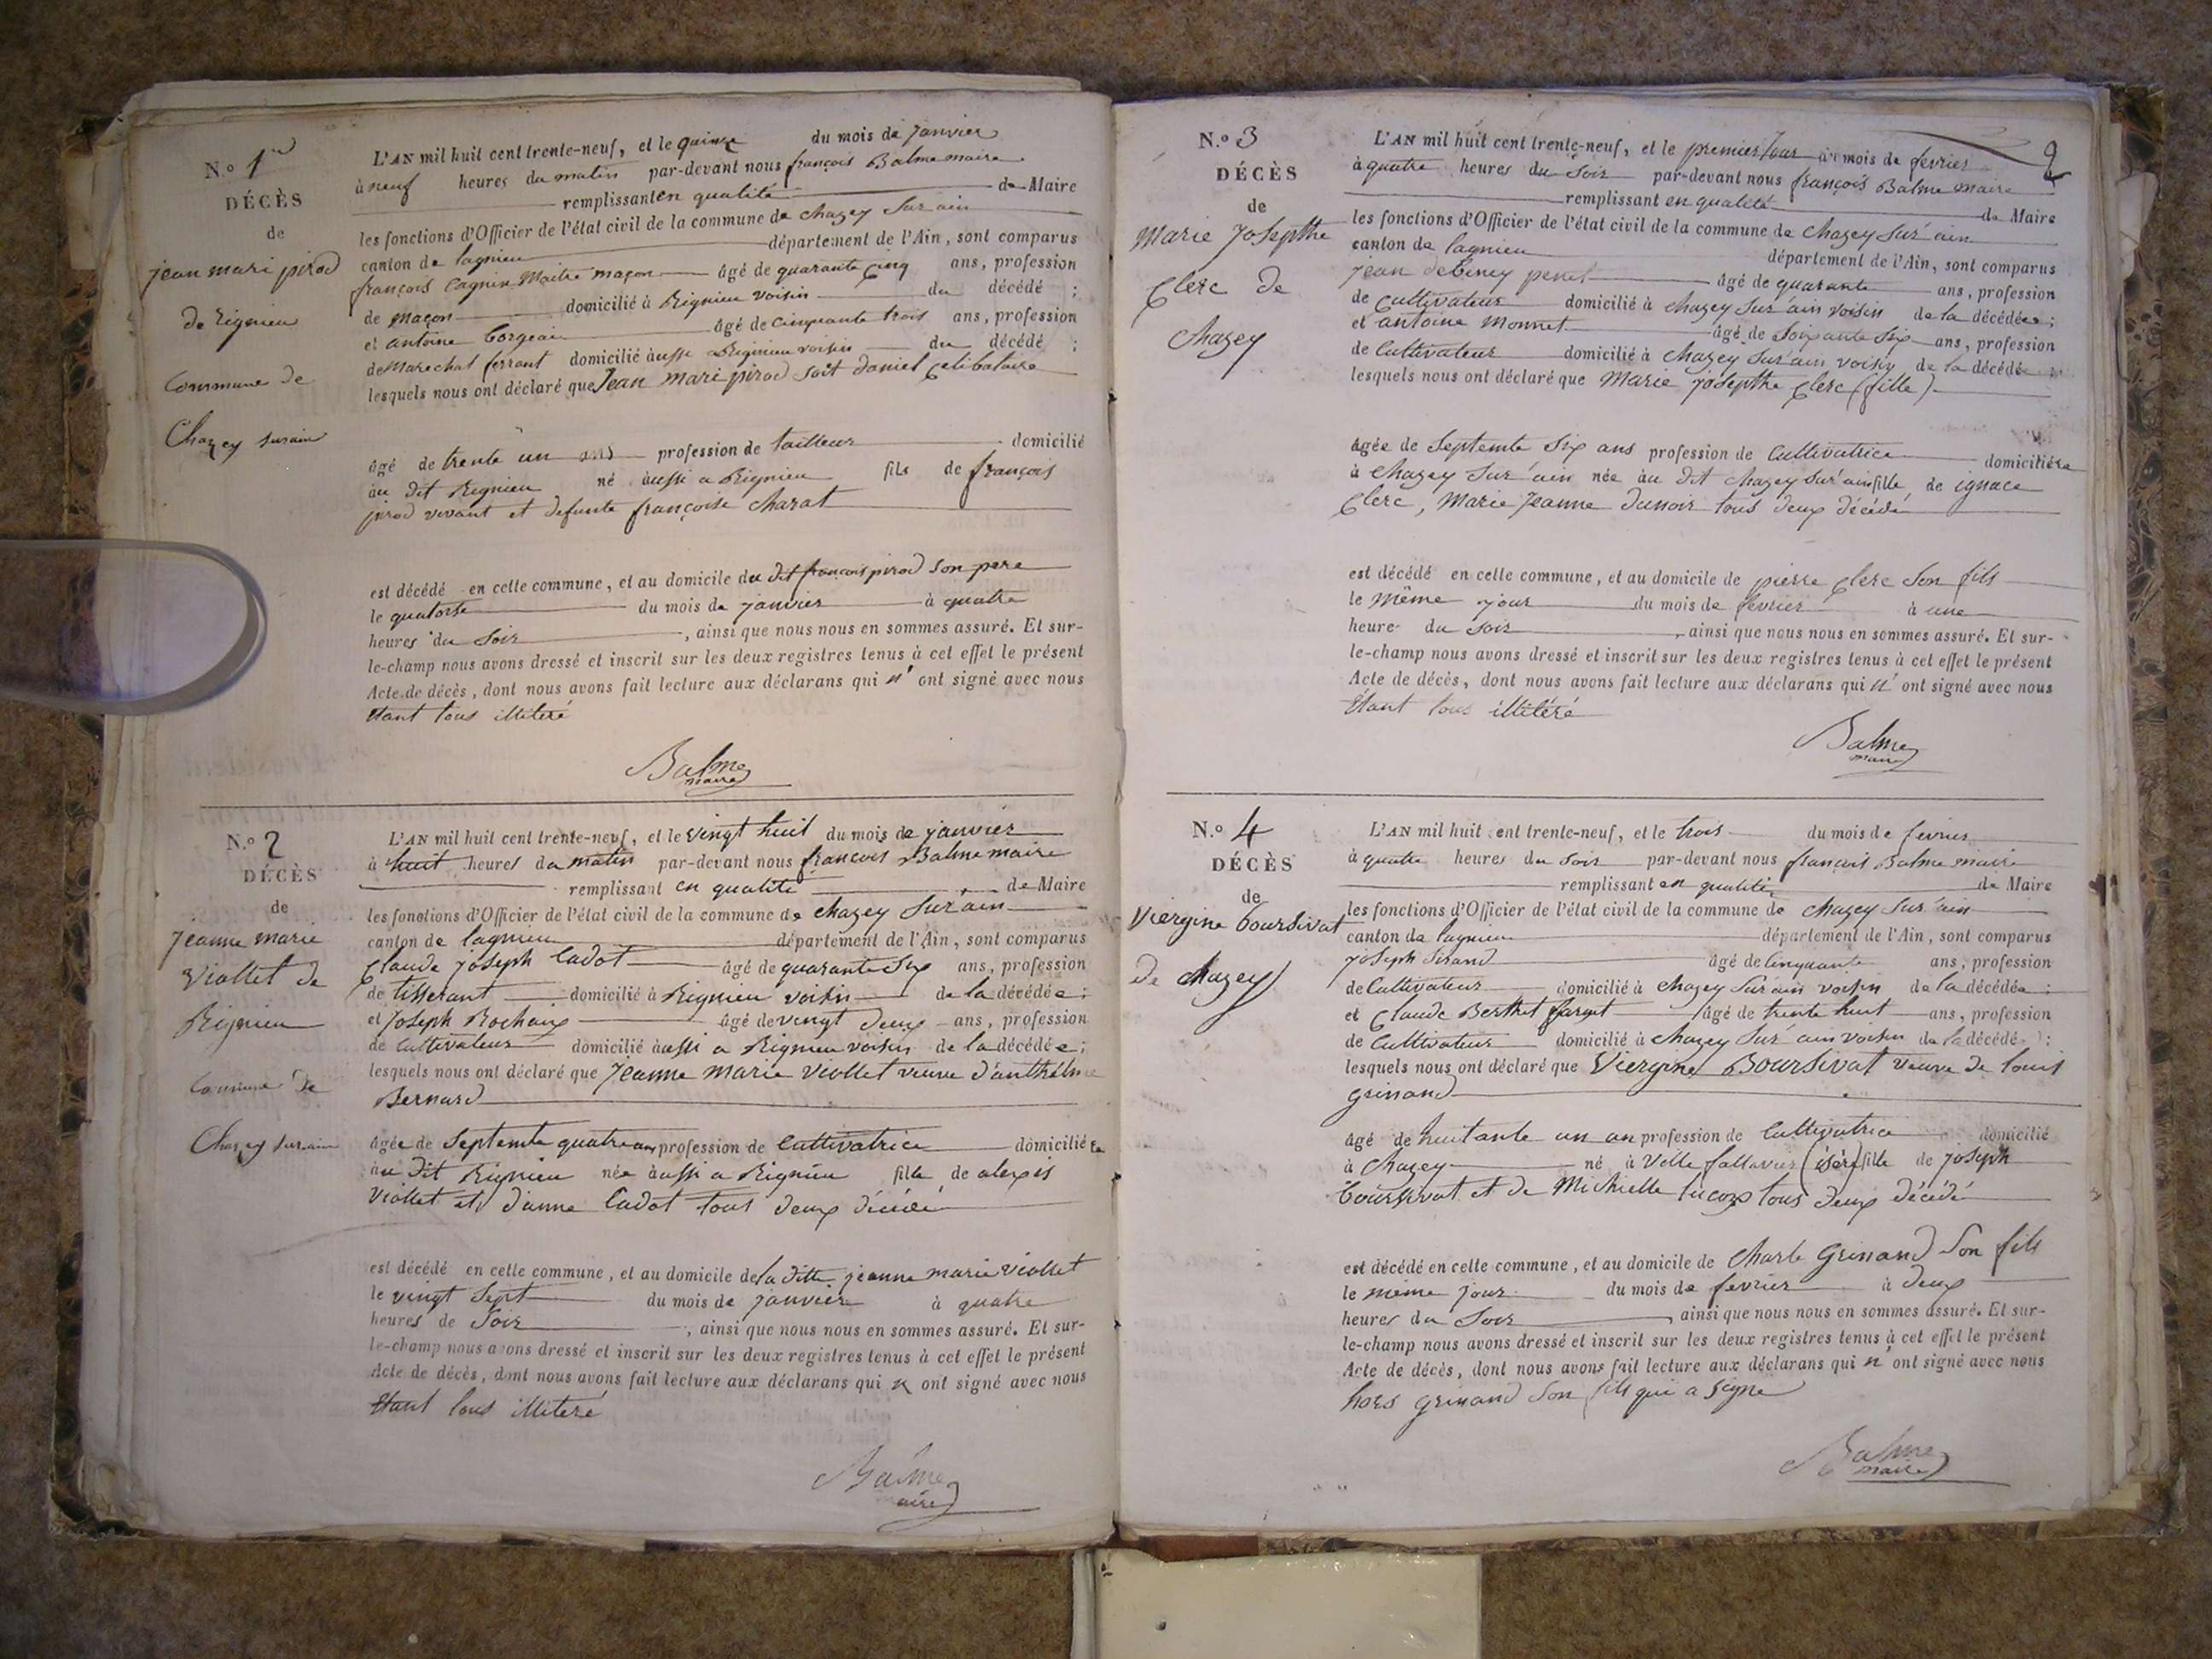 N.o 1er
DÉCÈS
de
jean mari pirod
de Rignieu
Commune de
Chazey surain
L'AN mil huit cent trente-neuf, et le quinze du mois de janvier
à neuf heures du matin par-devant nous françois Balme maire
remplissant en qualité de Maire
les fonctions d'Officier de l'état civil de la commune de chazey sur ain
canton de lagnieu département de l'Ain, sont comparus
françois Cagnin Maitre maçon âgé de quarante cinq ans, profession
de maçon domicilié à Rignieu voisin du décédé ;
et antoine âgé de cinquante trois ans, profession
de Marechal ferrant domicilié àussi a Rignieu voisin du décédé ;
lesquels nous ont déclaré que Jean mari pirod soit daniel Celibataire
âgé de trente un ans profession de tailleur domicilié
àu dit Rignieu né àussi a Rignieu fils de françois
pirod vivant et defunte françoise charat
est décédé en cette commune, et au domicile du dit françois pirod son pere
le quatorse du mois de janvier à quatre
heures du Soir, ainsi que nous nous en sommes assuré. Et sur-
le-champ nous avons dressé et inscrit sur les deux registres tenus à cet effet le présent
Acte de décès, dont nous avons fait lecture aux déclarans qui n' ont signé avec nous
étant tous illiteré
Balme
maire
N.o 2
DÉCÈS
de
Jeanne marie
Viollet de
Rignieu
Commune de
Chazey surain
L'AN mil huit cent trente-neuf, et le vingt huit du mois de janvier
à huit heures du matin par-devant nous françois Balme maire
remplissant en qualité de Maire
les fonctions d'Officier de l'état civil de la commune de chazey sur ain
canton de lagnieu département de l'Ain, sont comparus
Claude joseph Cadot âgé de quarante six ans, profession
de tisserant domicilié à Rignieu voisin de la décédée ;
et Joseph Rochaix âgé de vingt deux ans, profession
de Cultivateur domicilié àussi a Rignieu voisin de la décédée ;
lesquels nous ont déclaré que Jeanne marie Viollet veuve d'anthelme
Bernard
âgée de septente quatre ans profession de Cultivatrice domiciliée
àu dit Rignieu née àussi a Rignieu fille de alexis
Viollet et d'anne Cadot tous deux décédé
est décédé en cette commune, et au domicile de la ditte jeanne marie viollet
le vingt sept du mois de janvier à quatre
heures de Soir, ainsi que nous nous en sommes assuré. Et sur-
le-champ nous avons dressé et inscrit sur les deux registres tenus à cet effet le présent
Acte de décès, dont nous avons fait lecture aux déclarans qui n ont signé avec nous
étant tous illiteré
Balme
maire
2
N.o 3
DÉCÈS
de
Marie Josepthe
Clerc de
Chazey
L'AN mil huit cent trente-neuf, et le premier Jour du mois de fevrier
à quatre heures du Soir par-devant nous françois Balme maire
remplissant en qualité de Maire
les fonctions d'Officier de l'état civil de la commune de chazey sur ain
canton de lagnieu département de l'Ain, sont comparus
jean âgé de quarante ans, profession
de Cultivateur domicilié à chazey sur ain voisin de la décédée ;
et antoine Monnet âgé de soixante six ans, profession
de Cultivateur domicilié à chazey sur ain voisin de la décédé ;
lesquels nous ont déclaré que Marie josepthe Clerc (fille)
âgée de Septente six ans profession de Cultivatrice domiciliée
à chazey sur ain née àu dit chazey sur ain fille de ignace
Clerc, Marie Jeanne dunoir tous deux décédé
est décédé en cette commune, et au domicile de pierre Clerc Son fils
le même jour du mois de fevrier à une
heure du soir, ainsi que nous nous en sommes assuré. Et sur-
le-champ nous avons dressé et inscrit sur les deux registres tenus à cet effet le présent
Acte de décès, dont nous avons fait lecture aux déclarans qui n' ont signé avec nous
étant tous illitéré
Balme
maire
N.o 4
DÉCÈS
de
Viergine Boursivat
de chazey
L'AN mil huit cent trente-neuf, et le trois du mois de fevrier
à quatre heures du soir par-devant nous françois Balme maire
remplissant en qualité de Maire
les fonctions d'Officier de l'état civil de la commune de chazey sur ain
canton de lagnieu département de l'Ain, sont comparus
joseph Sirand âgé de Cinquante ans, profession
de Cultivateur domicilié à chazey sur ain voisin de la décédée ;
et Claude Berthet fargot âgé de trente huit ans, profession
de Cultivateur domicilié à chazey sur ain voisin de la décédé ;
lesquels nous ont déclaré que Viergine Boursivat veuve de louis
grinand
âgé de huitante un an profession de Cultivatrice domicilié
à chazey né à Ville fallavier (isère) fille de joseph
Boursivat et de Michielle tous deux décédé
est décédé en cette commune, et au domicile de charle Grinand Son fils
le même jour du mois de fevrier à deux
heures du Soir, ainsi que nous nous en sommes assuré. Et sur-
le-champ nous avons dressé et inscrit sur les deux registres tenus à cet effet le présent
Acte de décès, dont nous avons fait lecture aux déclarans qui n' ont signé avec nous
hors grinand son fils qui a signe
Balme
maire